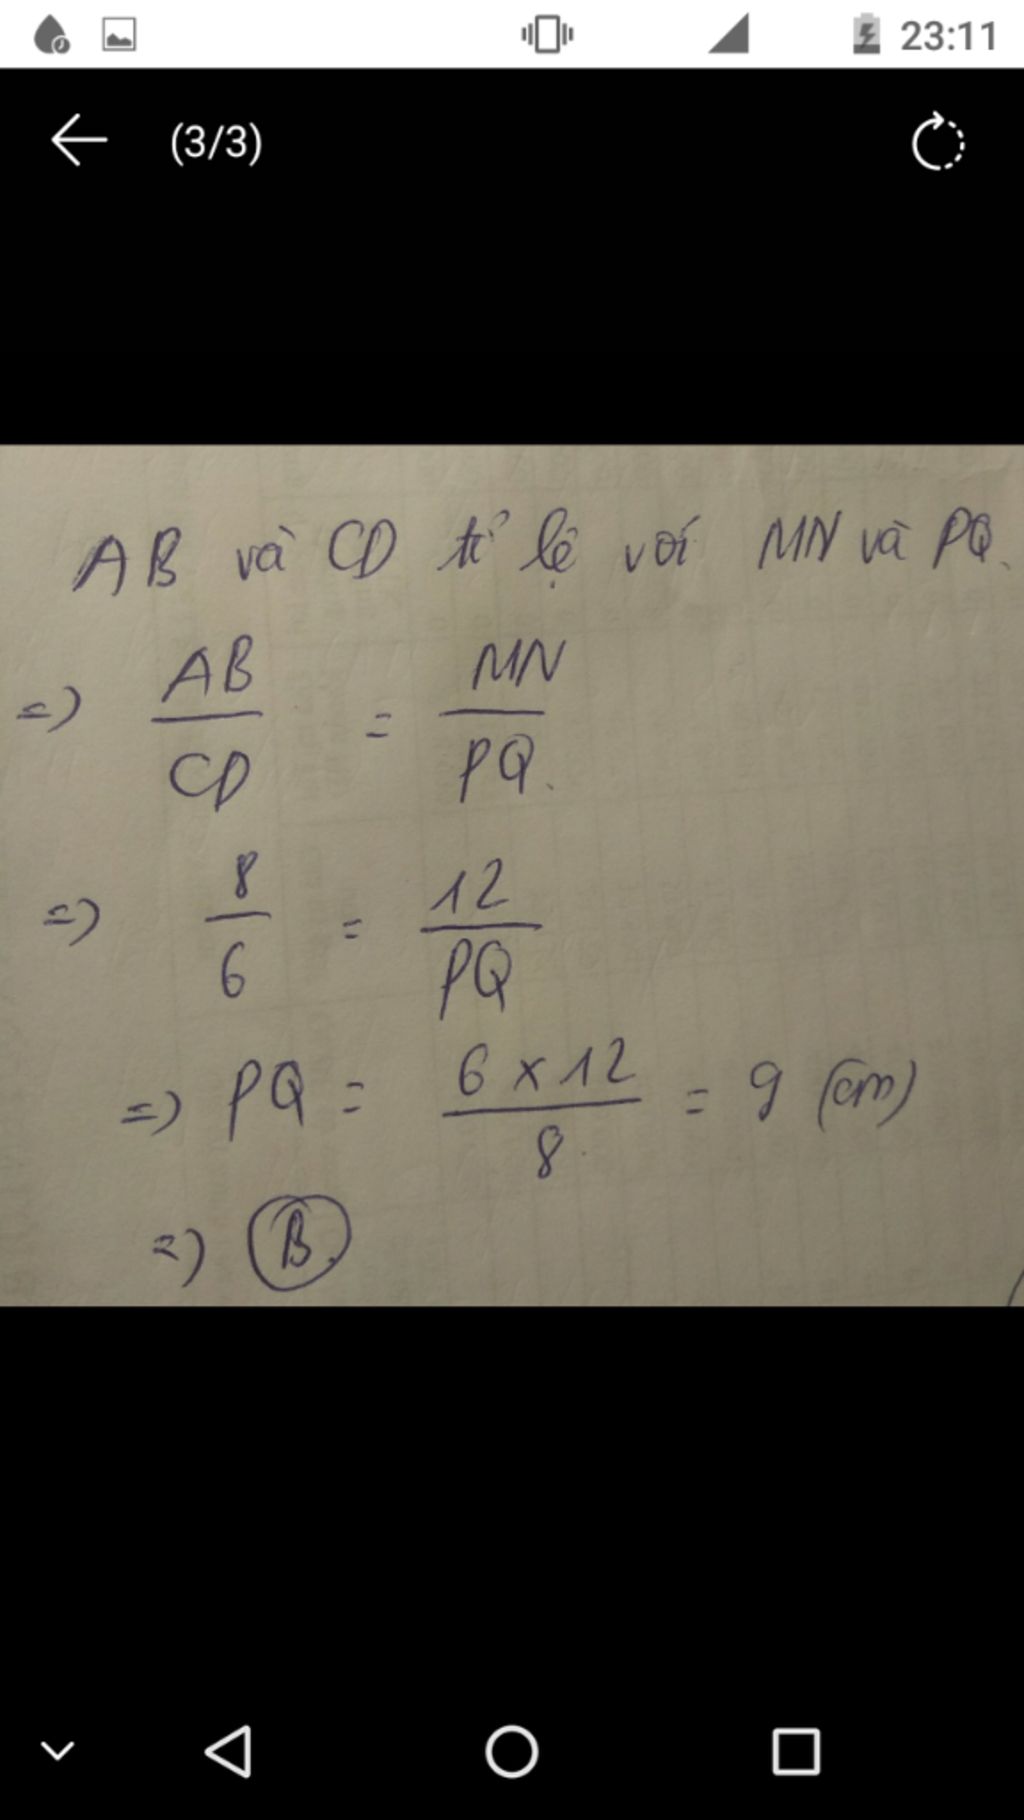 23:11
(3/3)
AB và CD tỉ lệ với MN và PQ.
=) AB/CD = MN/PQ.
=) 8/6 = 12/PQ
=) PQ = 6 x 12/8 = 9 (cm)
=) B.